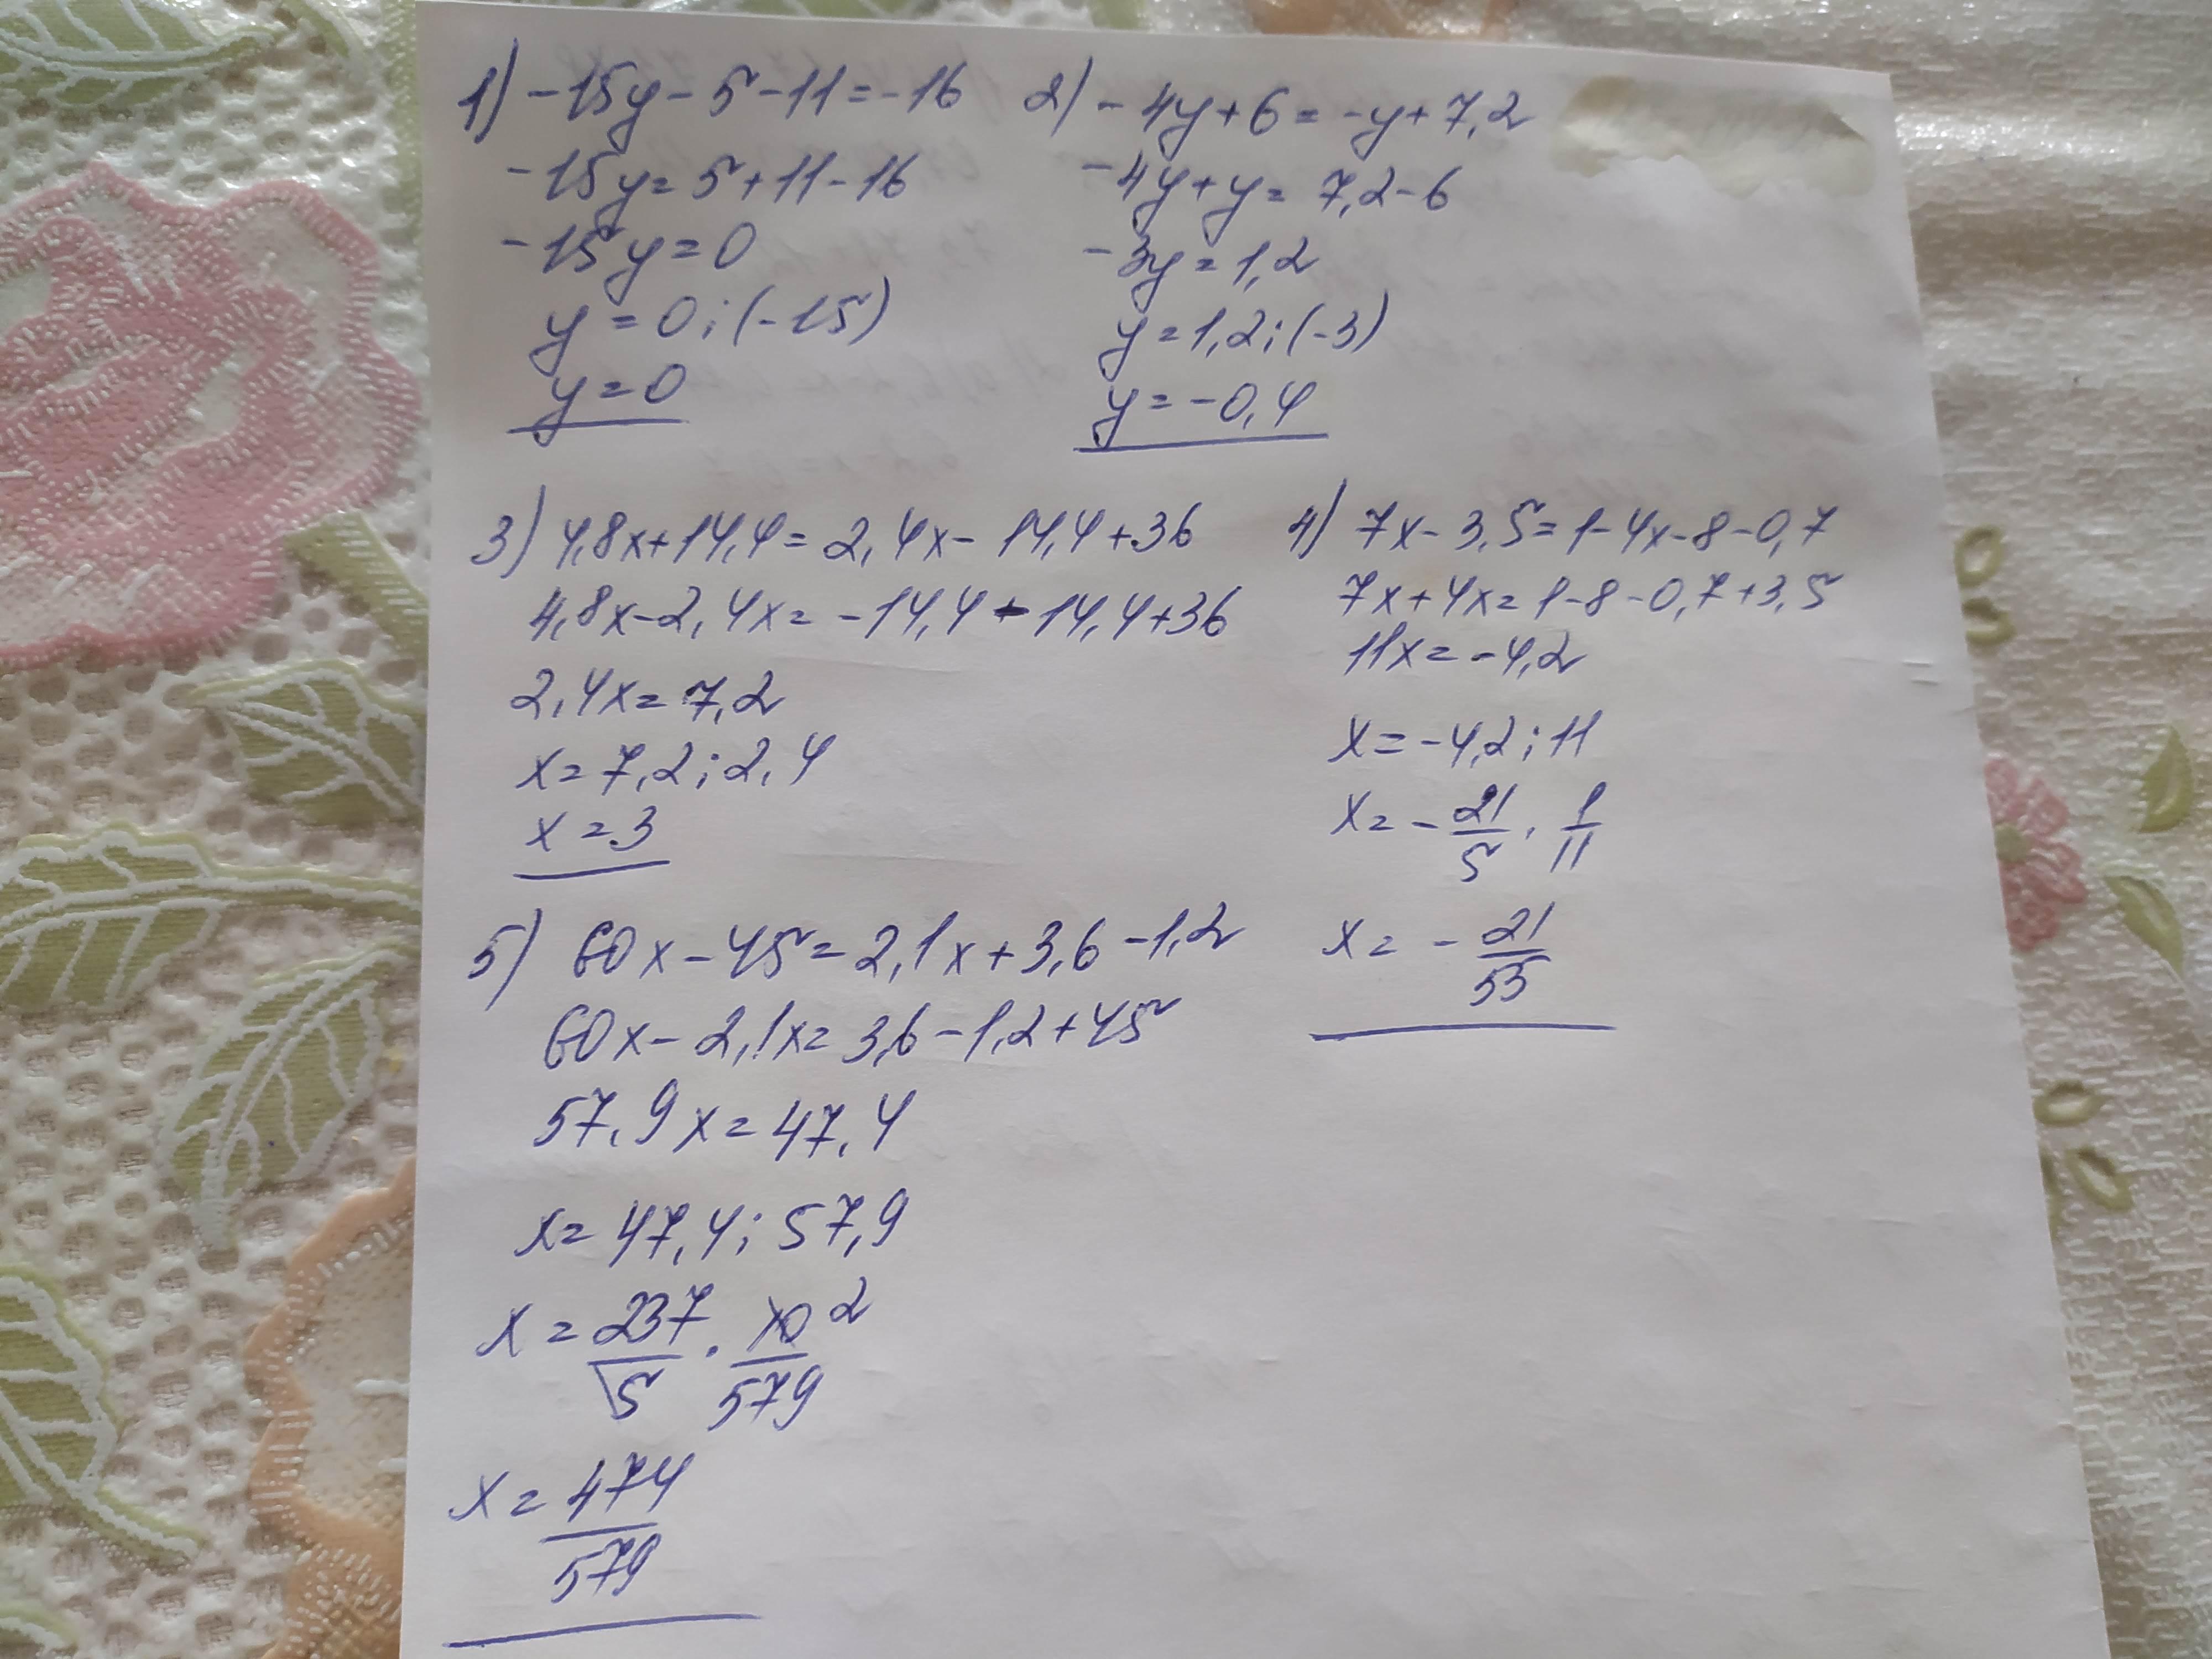 1) -15y - 5 - 11 = -16
-15y = 5 + 11 - 16
-15y = 0
y = 0 : (-15)
y = 0
2) - 4y + 6 = -y + 7,2
-4y + y = 7,2 - 6
-3y = 1,2
y = 1,2 : (-3)
y = -0,4
3) 4,8x + 14,4 = 2,4x - 14,4 + 36
4,8x - 2,4x = -14,4 - 14,4 + 36
2,4x = 7,2
x = 7,2 : 2,4
x = 3
4) 7x - 3,5 = 1 - 4x - 8 - 0,7
7x + 4x = 1 - 8 - 0,7 + 3,5
11x = -4,2
x = -4,2 : 11
x = - 21/5 · 1/11
x = - 21/55
5) 60x - 45 = 2,1x + 3,6 - 1,2
60x - 2,1x = 3,6 - 1,2 + 45
57,9x = 47,4
x = 47,4 : 57,9
x = 237/5 · 10 2/579
x = 474/579